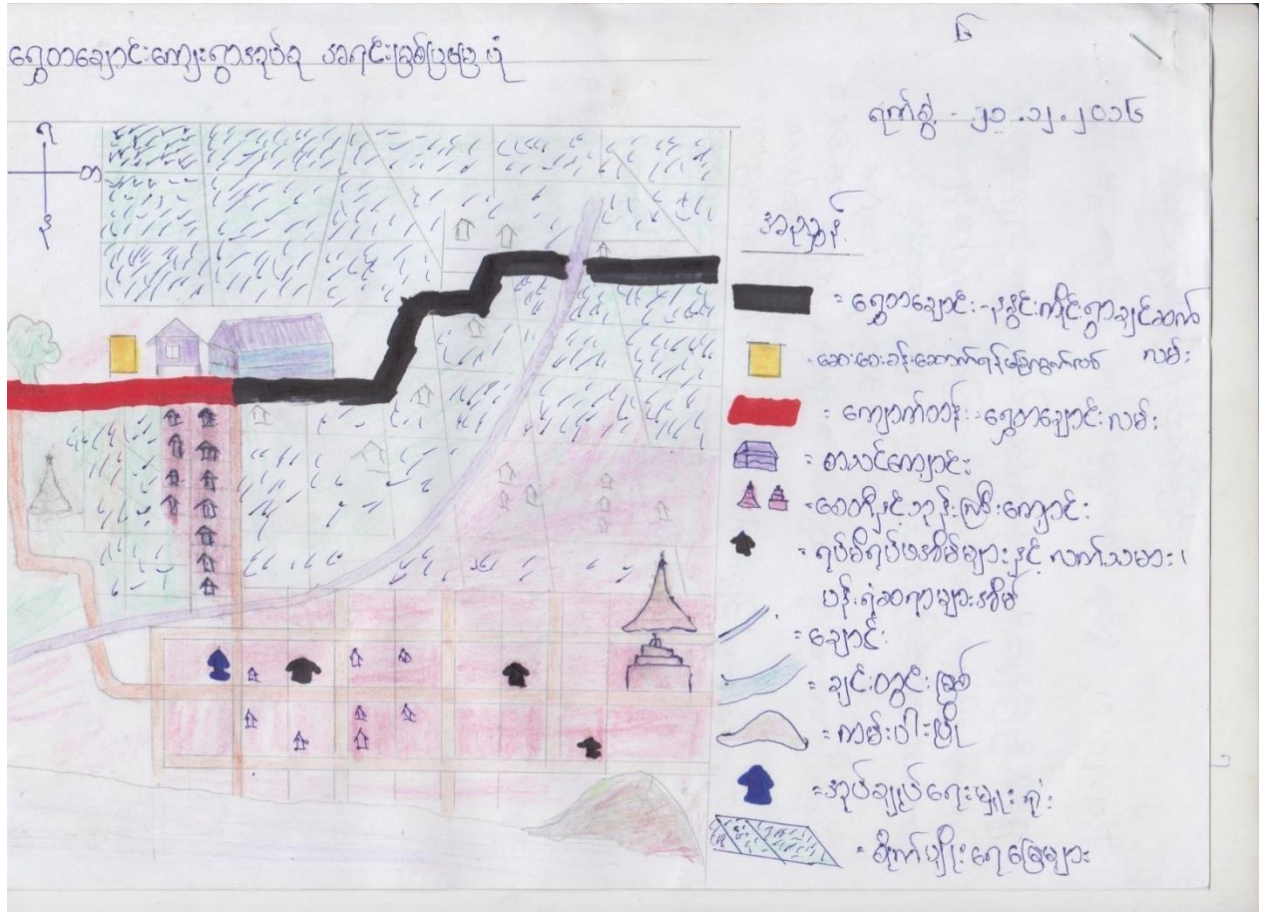 ၆
ရွှေတချောင်းကျေးရွာအုပ်စု အရင်းမြစ်ပြမြေပုံ
ရက်စွဲ - ၂၁.၁၂.၂၀၁၆
တ
အညွှန်း
= ရွှေတချောင်း - နနွင်းကိုင်းရွာချင်ဆက်
လမ်း
- ဆေးပေးခန်းဆောက်ရန်မြေကွက်လပ်
= ကျောက်တန်း - ရွှေတချောင်းလမ်း
= စာသင်ကျောင်း
= စေတီနှင့်ဘုန်းကြီးကျောင်း
= ရပ်မိရပ်ဖအိမ်များနှင့် လက်သမား၊
ပန်းရံဆရာများအိမ်
= ချောင်း
= ချင်းတွင်းမြစ်
= ကမ်းပါးပြို
= အုပ်ချုပ်ရေးမှူးရုံး
= စိုက်ပျိုးရေးမြေများ